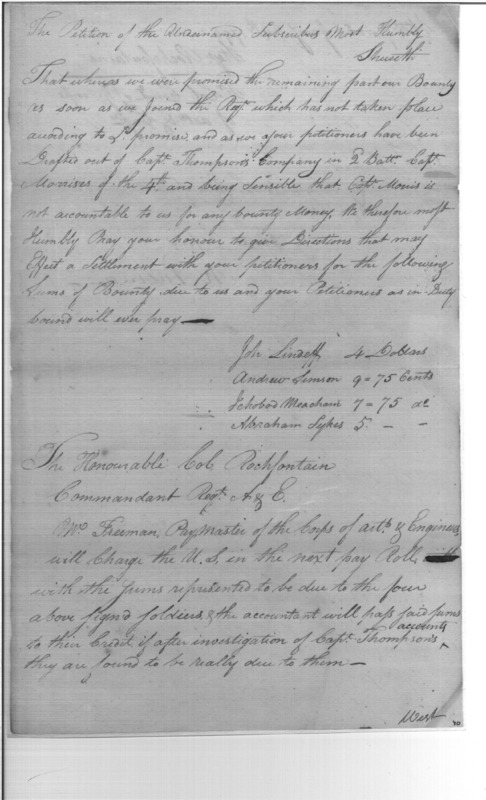 The Petition of the Undernamed Subscribers Most Humbly
Sheweth
That whereas we were promised the remaining part our Bounty
as soon as we joined the Regt. which has not taken place
according to sd. promise, and as we your petitioners have been
Drafted out of Capt. Thompson's Company in 2 Batt. Capt.
Morrises of the 4th. and being Sensible that Capt. Morris is
not accountable to us for any bounty Money, We therefore most
Humbly Pray your honour to give Directions that may
Effect a Settlement with your petitioners for the following
Sums of Bounty due to us and your Petitioners as in Duty
bound will ever pray —
Joh. 4 Dollars
Andrew Simson 9 = 75 Cents
Ichobod Meacham 7 = 75 do
Abraham Sykes 5. - -
The Honourable Col. Rochfontain
Commandant Regt. A & E.
Mr. Freeman, Pay Master of the Corps of art. & Engineers
will Charge the U.S. in the next pay Roll,
with the sums represented to be due to the four
above signd soldiers, & the accountant will pass said sums
to their Credit if after investigation of Capt. Thompson's accounts
they are found to be really due to them —
West